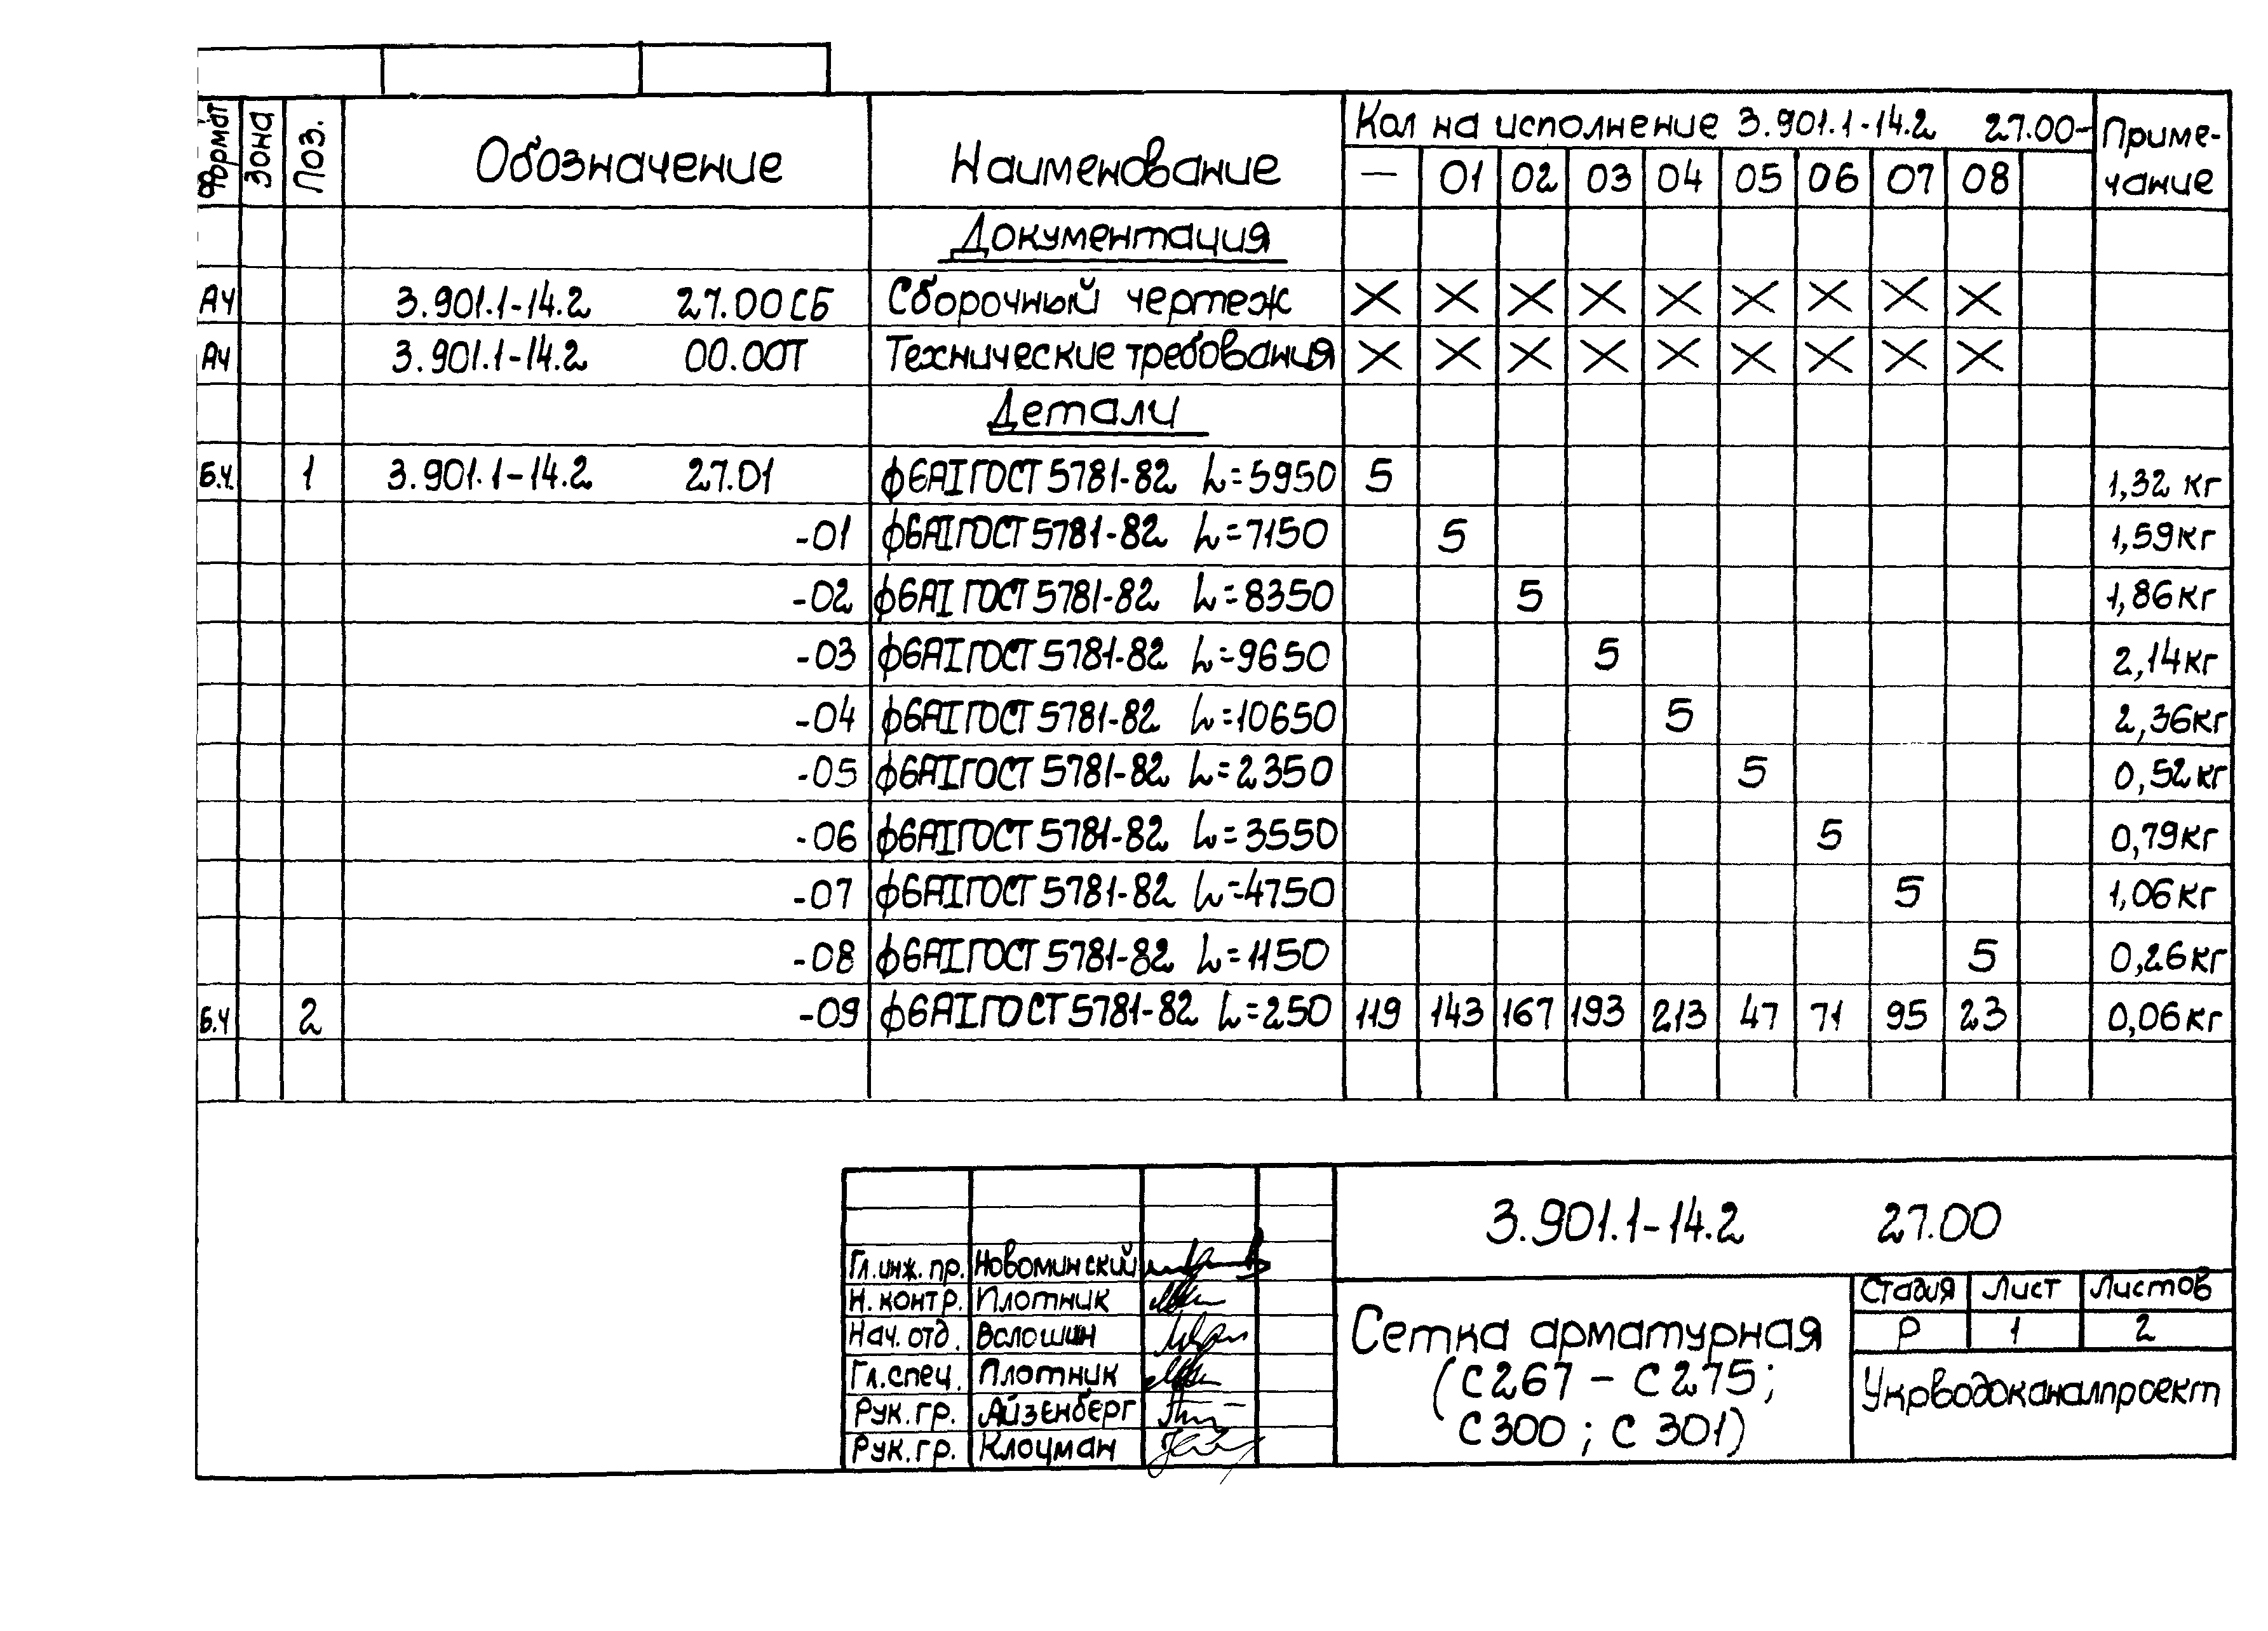 Формат Зона Поз. Обозначение Наименование Кол на исполнение 3.901.1-14.2 27.00- Приме-
чание
— 01 02 03 04 05 06 07 08
Документация
А4 3.901.1-14.2 27.00СБ Сборочный чертеж X X X X X X X X X
А4 3.901.1-14.2 00.00Т Технические требования X X X X X X X X X
Детали
Б.ч. 1 3.901.1-14.2 27.01 ф6АIГОСТ 5781-82 L=5950 5 1,32 кг
-01 ф6АIГОСТ 5781-82 L=7150 5 1,59кг
-02 ф6АI ГОСТ 5781-82 L=8350 5 1,86кг
-03 ф6АIГОСТ 5781-82 L=9650 5 2,14кг
-04 ф6АIГОСТ 5781-82 L=10650 5 2,36кг
-05 ф6АIГОСТ 5781-82 L=2350 5 0,52кг
-06 ф6АIГОСТ 5781-82 L=3550 5 0,79кг
-07 ф6АIГОСТ 5781-82 L=4750 5 1,06кг
-08 ф6АIГОСТ 5781-82 L=1150 5 0,26кг
Б.ч 2 -09 ф6АIГОСТ 5781-82 L=250 119 143 167 193 213 47 71 95 23 0,06кг
3.901.1-14.2 27.00
Гл.инж.пр. Новоминский
Н.контр. Плотник
Нач.отд. Волошин
Гл.спец. Плотник
Рук.гр. Айзенберг
Рук.гр. Клоцман
Сетка арматурная
(С267 - С275;
С300; С 301)
Стадия Лист Листов
Р 1 2
Укрводоканалпроект